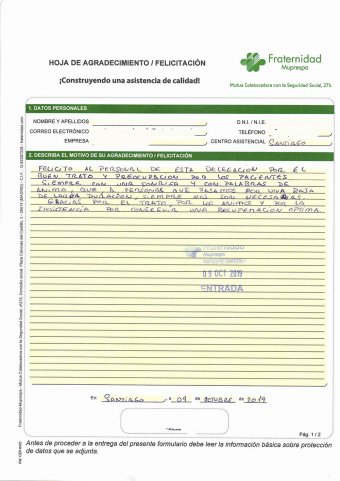 HOJA DE AGRADECIMIENTO / FELICITACIÓN
Fraternidad
Muprespa
¡Construyendo una asistencia de calidad!
Mutua Colaboradora con la Seguridad Social, 275
1. DATOS PERSONALES
NOMBRE Y APELLIDOS
D.N.I. / N.I.E.
CORREO ELECTRÓNICO
TELÉFONO
EMPRESA
CENTRO ASISTENCIAL SANTIAGO
2. DESCRIBA EL MOTIVO DE SU AGRADECIMIENTO / FELICITACIÓN
FELICITO AL PERSONAL DE ESTA DELEGACION POR EL
BUEN TRATO Y PREOCUPACION POR LOS PACIENTES
SIEMPRE CON UNA SONRISA Y CON PALABRAS DE
ANIMO, QUE A PERSONAS QUE PASAMOS POR UNA BAJA
DE LARGA DURACION, SIEMPRE NOS SON NECESARIAS.
GRACIAS POR EL TRATO, POR LOS ANIMOS Y POR LA
INSISTENCIA POR CONSEGUIR UNA RECUPERACION OPTIMA.
Fraternidad
Muprespa
09 OCT 2019
ENTRADA
En SANTIAGO, a 09 de OCTUBRE de 2019
Pág. 1 / 2
Antes de proceder a la entrega del presente formulario debe leer la información básica sobre protección
de datos que se adjunta.